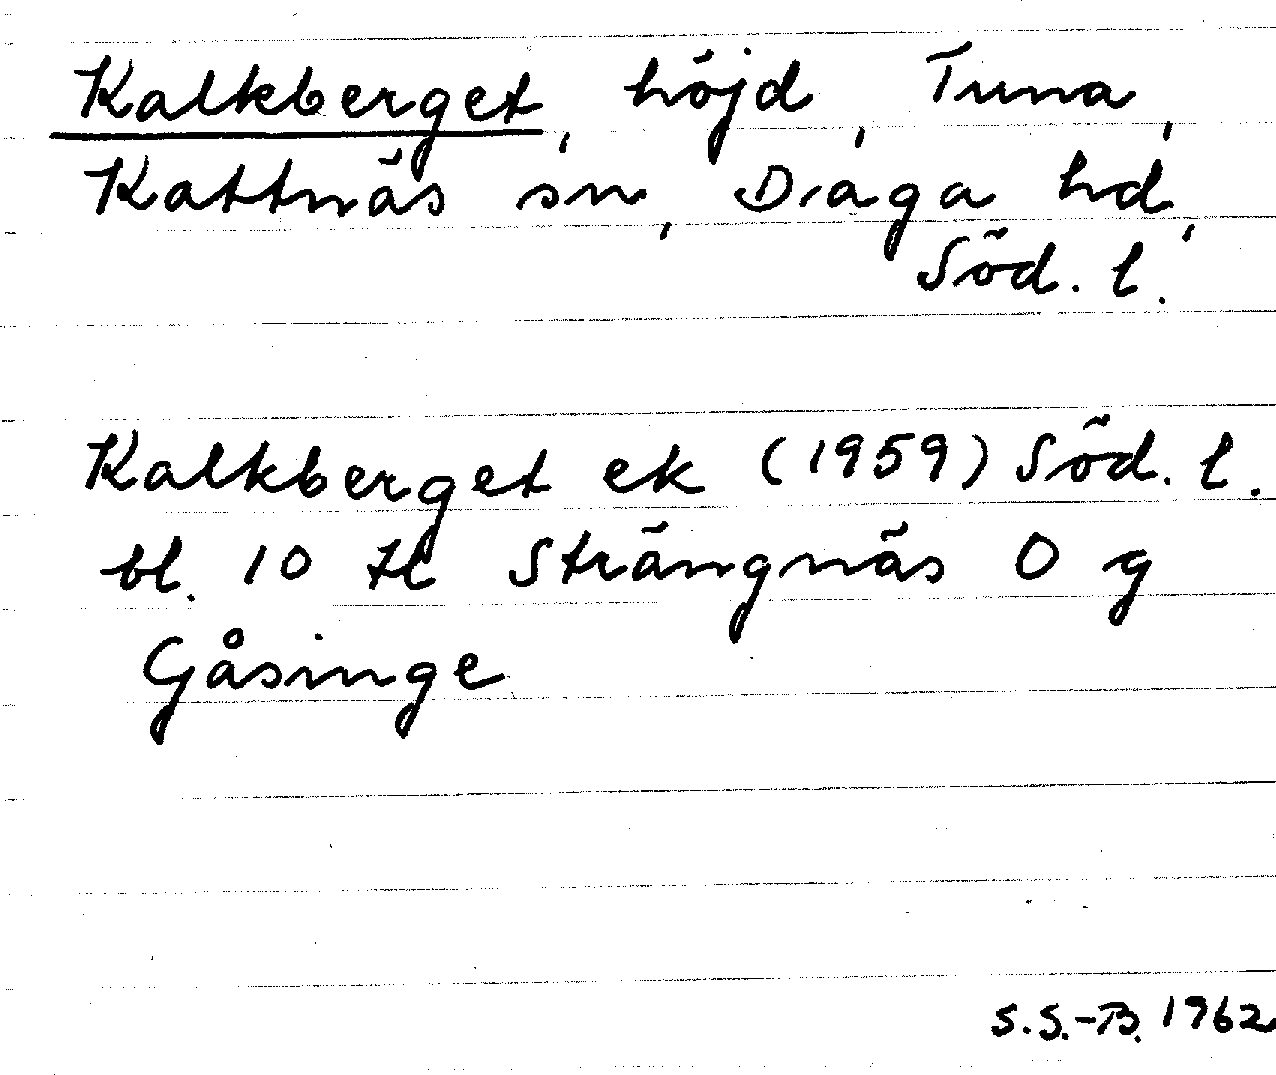 Kalkberget, höjd, Tuna,
Kattnäs sn, Daga hd,
Söd. l.
Kalkberget ek (1959) Söd. l.
bl. 10 H Strängnäs O g
Gåsinge
S.S.-B. 1962